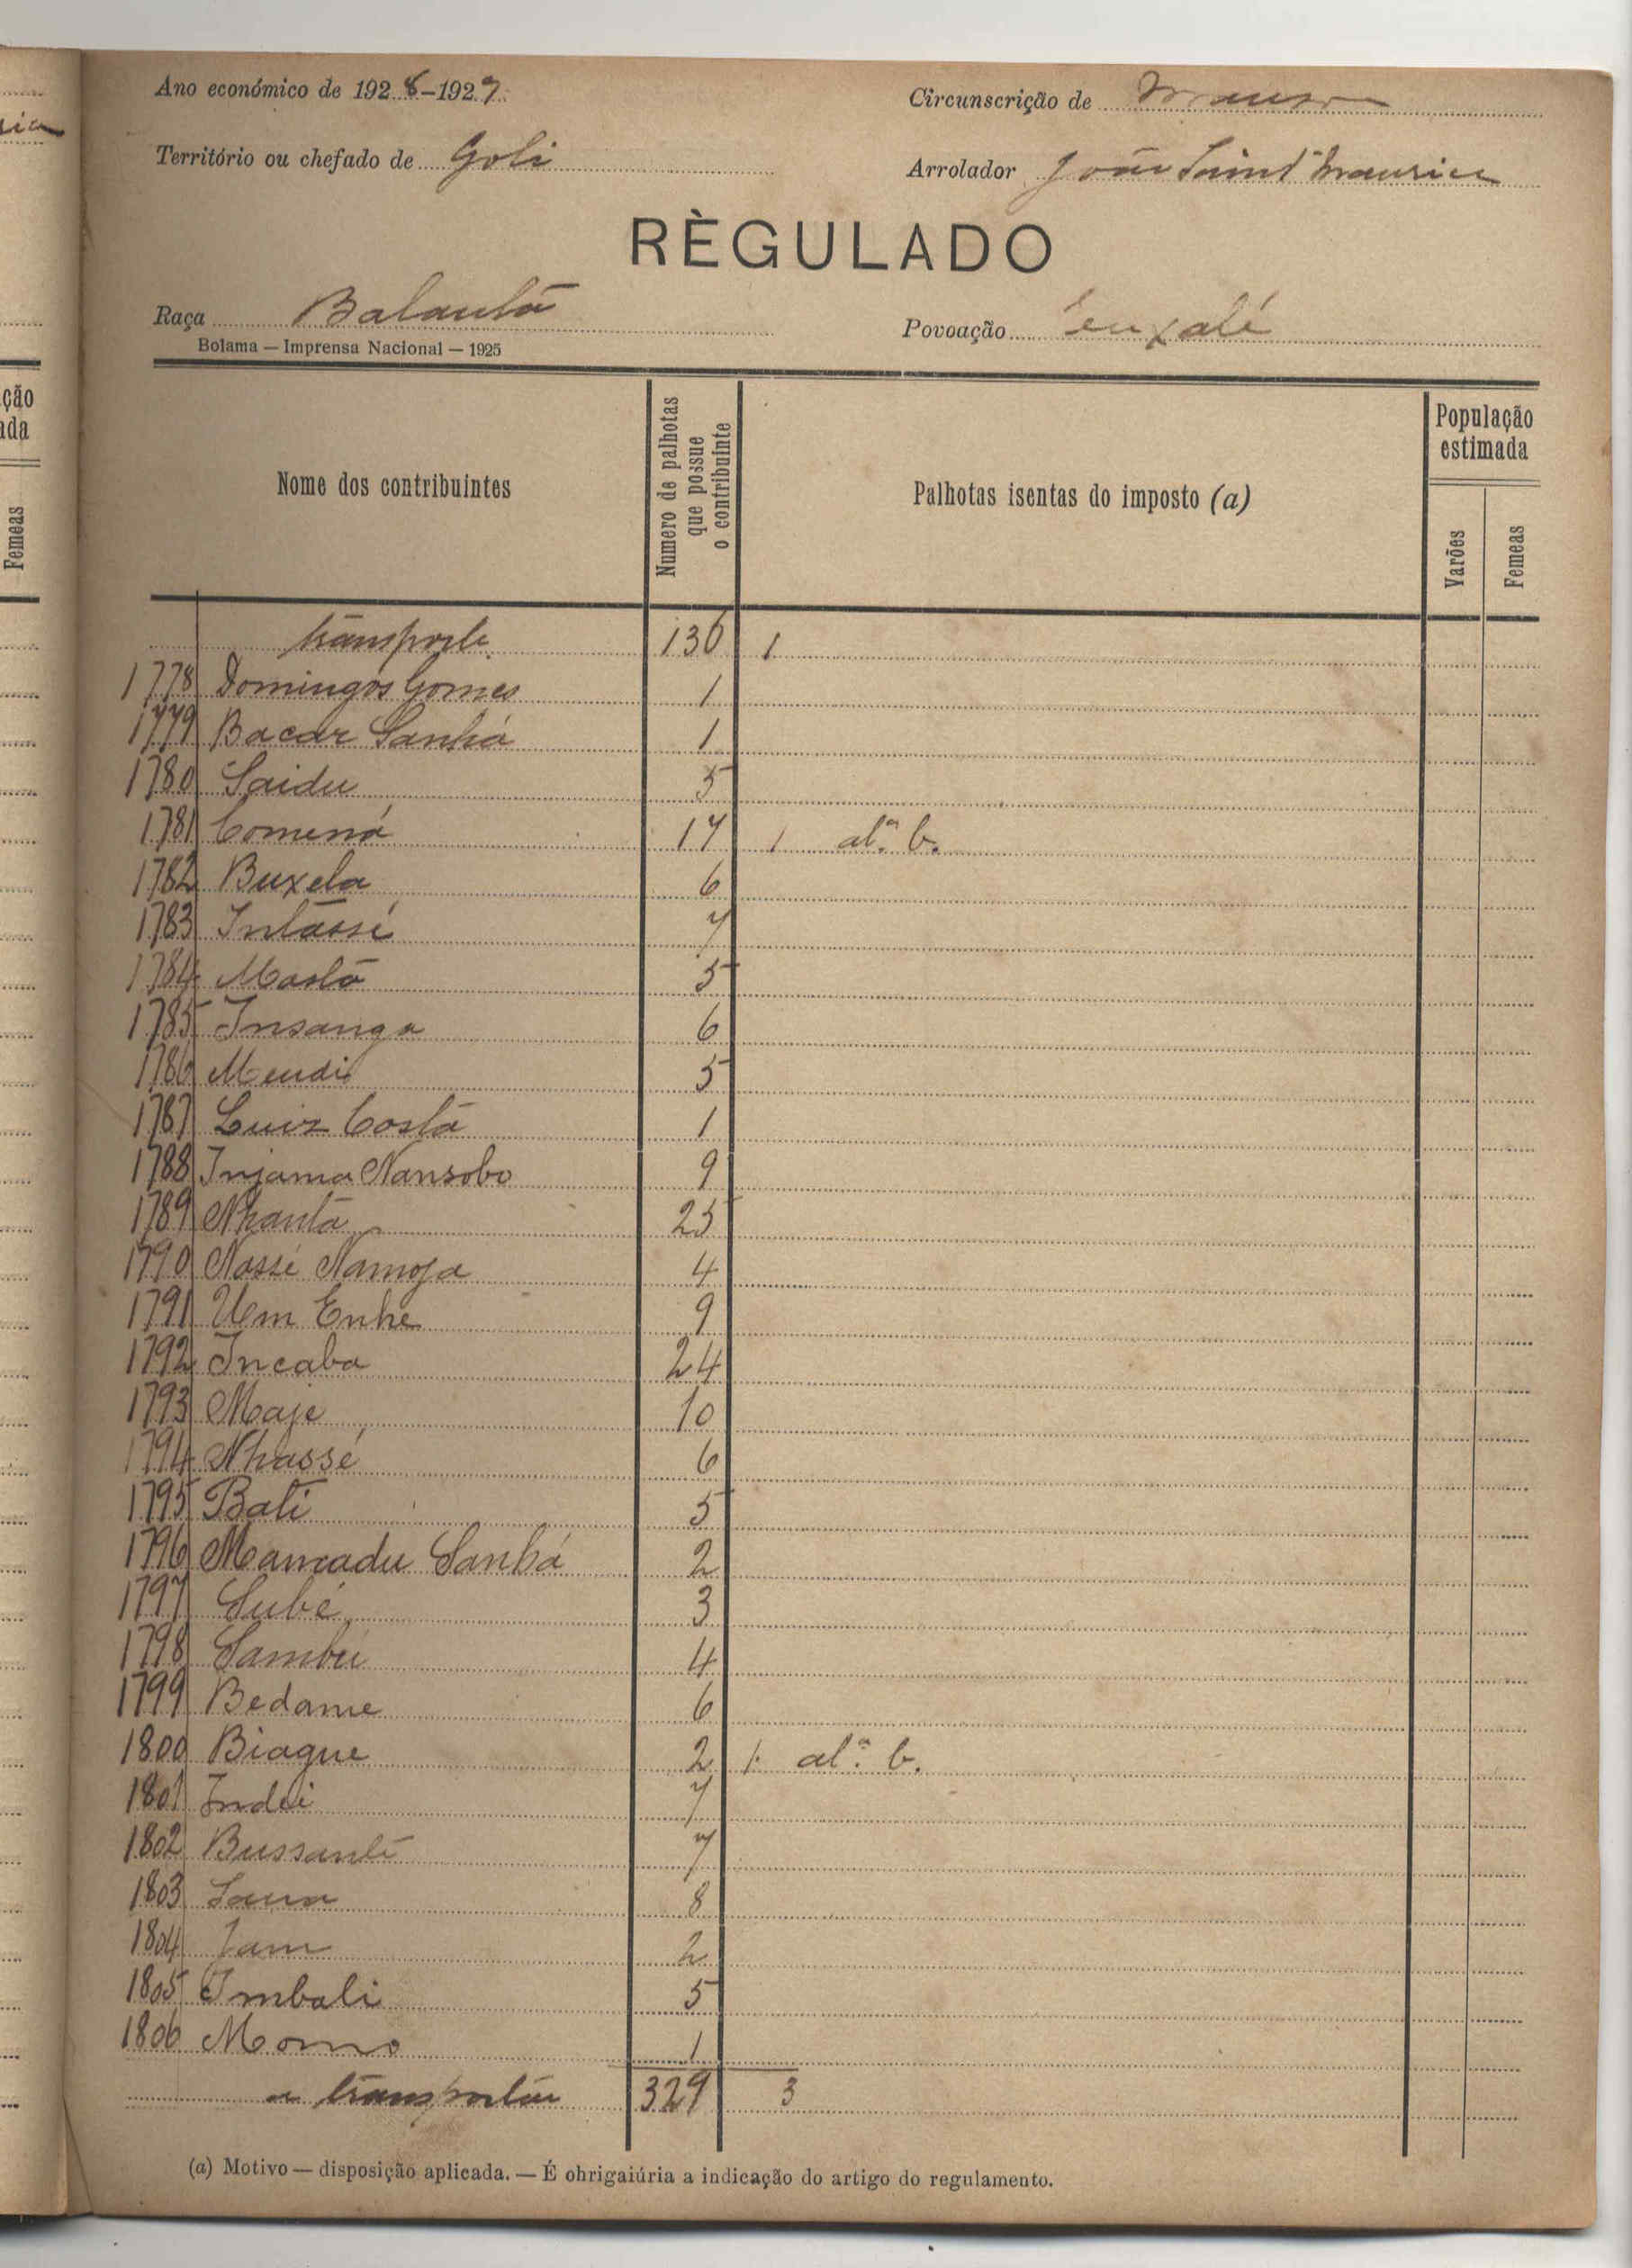 Ano económico de 1928-1929
Circunscrição de
Território ou chefado de Goli
Arrolador João Saint Maurice
RÈGULADO
Raça Balantã
Povoação Enxalé
Bolama — Imprensa Nacional — 1925
Nome dos contribuintes
Numero de palhotas que possue o contribuinte
Palhotas isentas do imposto (a)
População estimada
Varões
Femeas
transporte 136 1
1778 Domingos Gomes 1
1779 Bacar Sanhá 1
1780 Saidu 5
1781 Comená 17 1 alª. b.
1782 Buxela 6
1783 Intassé 7
1784 Mastã 5
1785 Insanga 6
1786 Mendi 5
1787 Luiz Costã 1
1788 Injama Nansobo 9
1789 Nhantã 25
1790 Nassé Namoja 4
1791 Um Enhe 9
1792 Incaba 24
1793 Maje 10
1794 Nhassé 6
1795 Bati 5
1796 Mamadu Sanhá 2
1797 Subé 3
1798 Sambú 4
1799 Bedame 6
1800 Biague 2 1 alª. b.
1801 Indei 7
1802 Bussanté 7
1803 8
1804 Jam 2
1805 Imbali 5
1806 Momo 1
a transportar 329 3
(a) Motivo — disposição aplicada. — É ohrigaiúria a indicação do artigo do regulamento.
ção
ada
Femeas